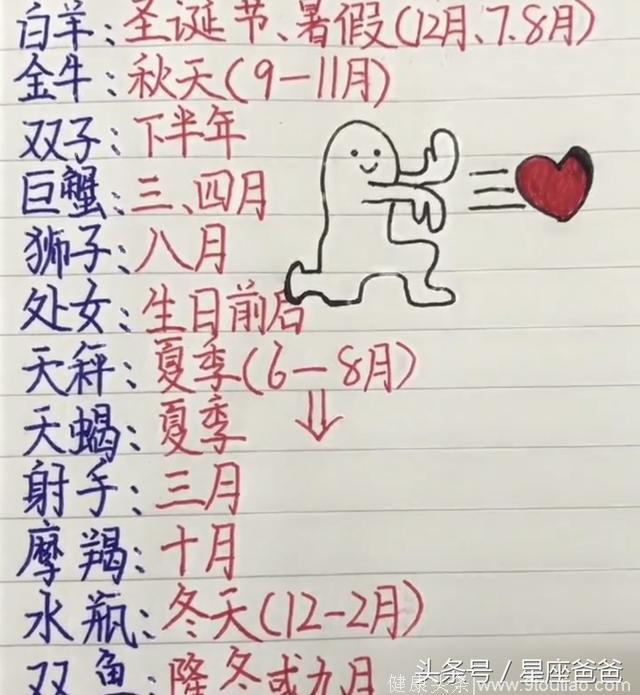 白羊:圣诞节、暑假(12月、7.8月)
金牛:秋天(9-11月)
双子:下半年
巨蟹:三、四月
狮子:八月
处女:生日前后
天秤:夏季(6-8月)
天蝎:夏季
射手:三月
摩羯:十月
水瓶:冬天(12-2月)
双鱼:隆冬或九月
头条号/星座爸爸